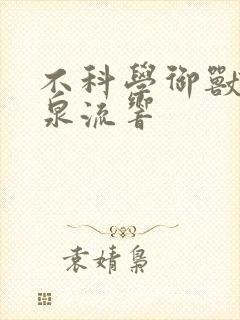 不科學御獸
泉流響
袁婧梟